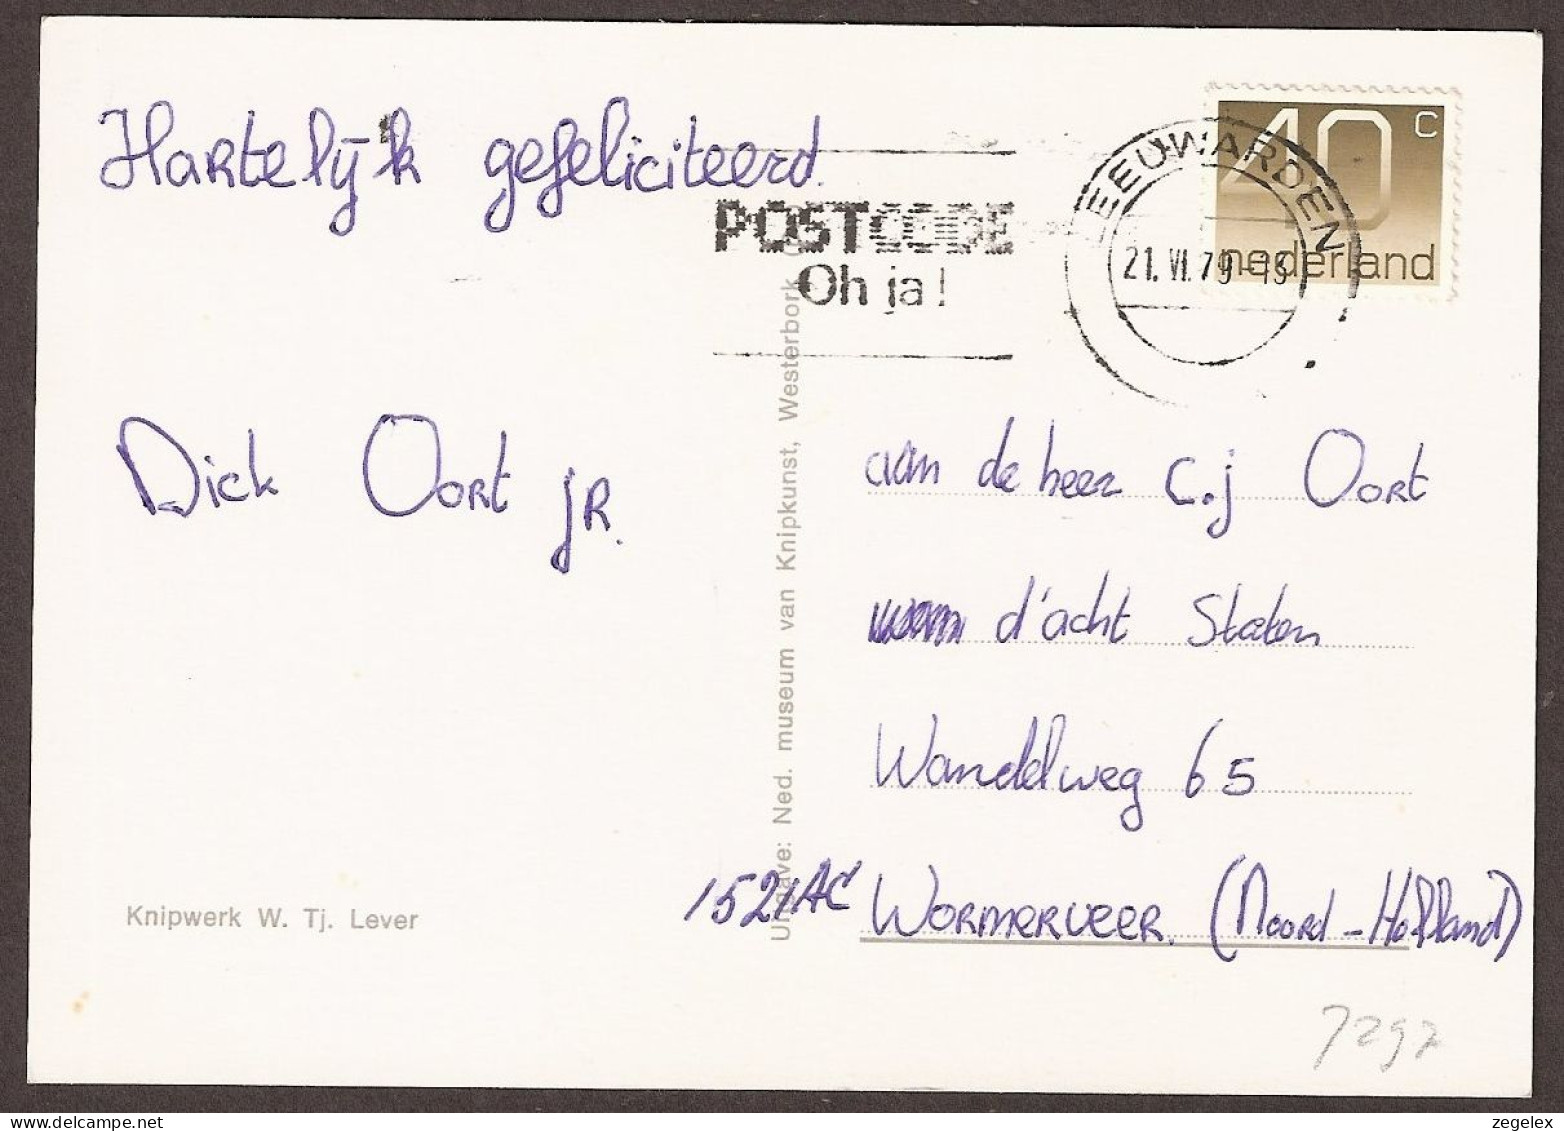 Hartelijk gefeliciteerd.
POSTCODE
Oh ja!
LEEUWARDEN
21. VI. 79 - 13
40 c
nederland
Dick Oort jR.
aan de heer C.j Oort
d'acht Staten
Wandelweg 65
1521AC WORMERVEER. (Noord-Holland)
Knipwerk W. Tj. Lever
Uitgave: Ned. museum van Knipkunst, Westerbork
7297
zegelex